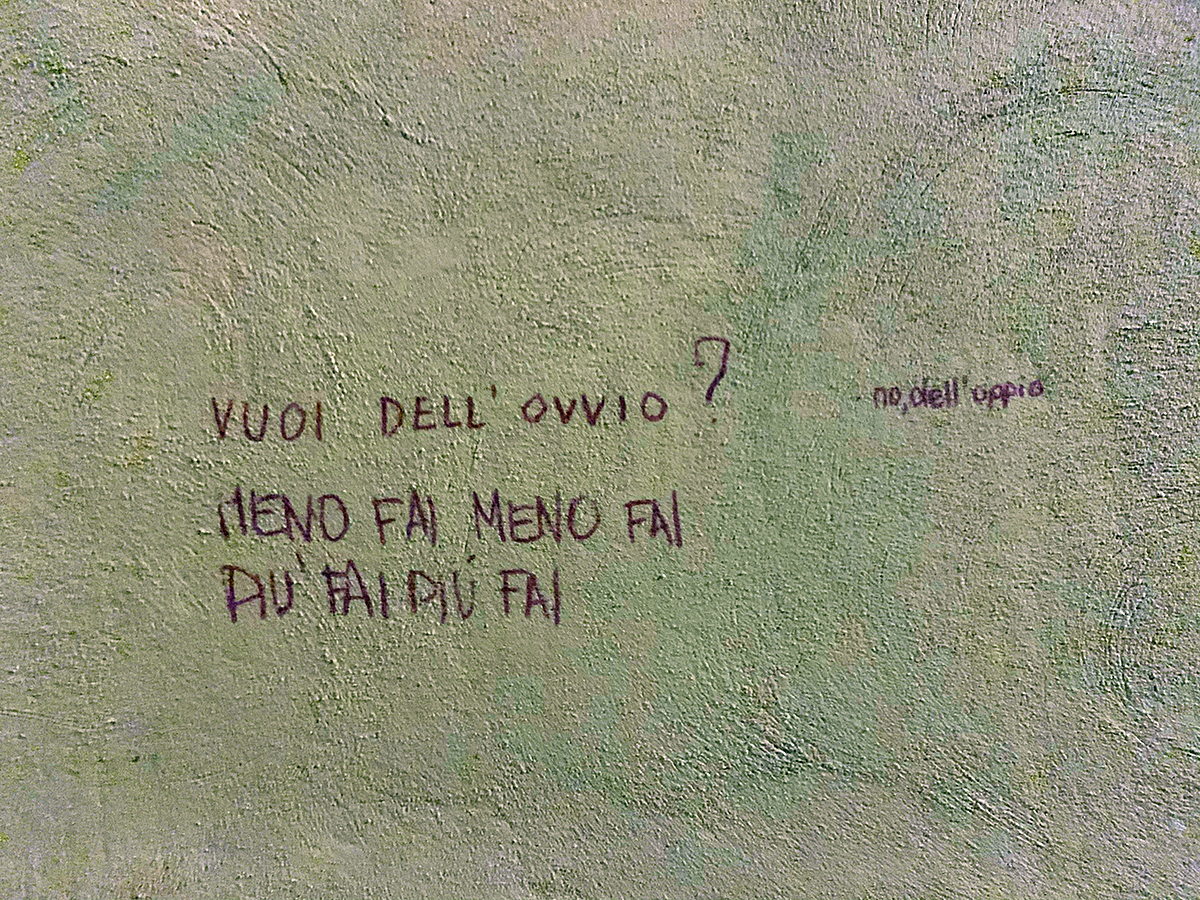 VUOI DELL'OVVIO?
no, dell'oppio
MENO FAI MENO FAI
PIU' FAI PIÙ FAI